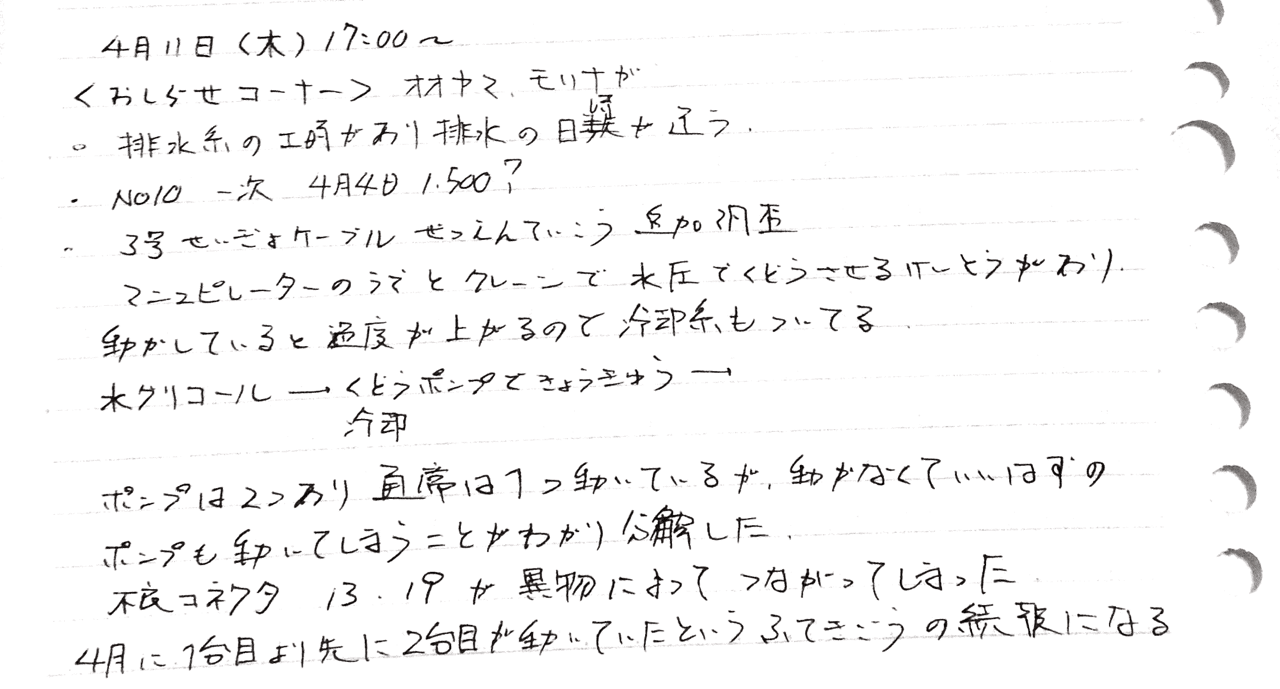 4月11日(木)17:00～
<おしらせコーナー> オオヤマ、モリナが
○ 排水系の工事があり排水の日時が近う.
・ No10 一次 4月4日 1.500?
・ 3号せいぎょケーブル ぜつえんていこう 追加調査
マニュピレーターのうでとクレーンで水圧でくどうさせるけいとうがあり.
動かしていると温度が上がるので冷却系もついてる.
水グリコール → くどうポンプできょうきゅう →
冷却
ポンプは2つあり 通常は1つ動いているが、動かなくていいはずの
ポンプも動いてしまうことがわかり分解した.
不良コネクタ 13.19が異物によってつながってしまった.
4月に1台目より先に2台目が動いていたというふてきごうの続報になる